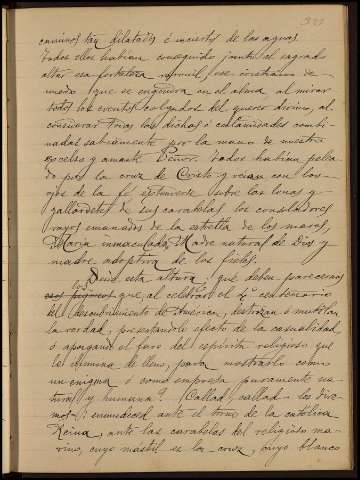 caminos tan dilatados é inciertos de las aguas.
Todos ellos habian conseguido junto al sagrado
altar esa fortaleza varonil, ese cristiano de-
nuedo que se engendra en el alma al mirar
todos los eventos colgados del querer divino, al
considerar todas las dichas ó calamidades combi-
nadas sabiamente por la mano de nuestro
excelso y amante Señor. Todos habian pelea-
do por la cruz de Cristo y veian con los
ojos de la fé extenderse sobre las lonas y
gallardetes de sus carabelas los consoladores
rayos emanados de la estrella de los mares,
Maria inmaculada, Madre natural de Dios y
madre adoptiva de los fieles.
Desde esta altura ¡que deben parecernos
los que, al celebrar el 4º centenario
del descubrimiento de America, destrozan ó mutilan
la verdad, presentandolo efecto de la casualidad
ó apagando el faro del espiritu religioso que
le ilumina de lleno, para mostrarlo como
un enigma ó como empresa puramente na-
tural y humana? ¡Callad, callad - les dire-
mos -; enmudeced ante el trono de la católica
Reina, ante las carabelas del religioso ma-
rino, cuyo mástil es la cruz, cuyo blanco